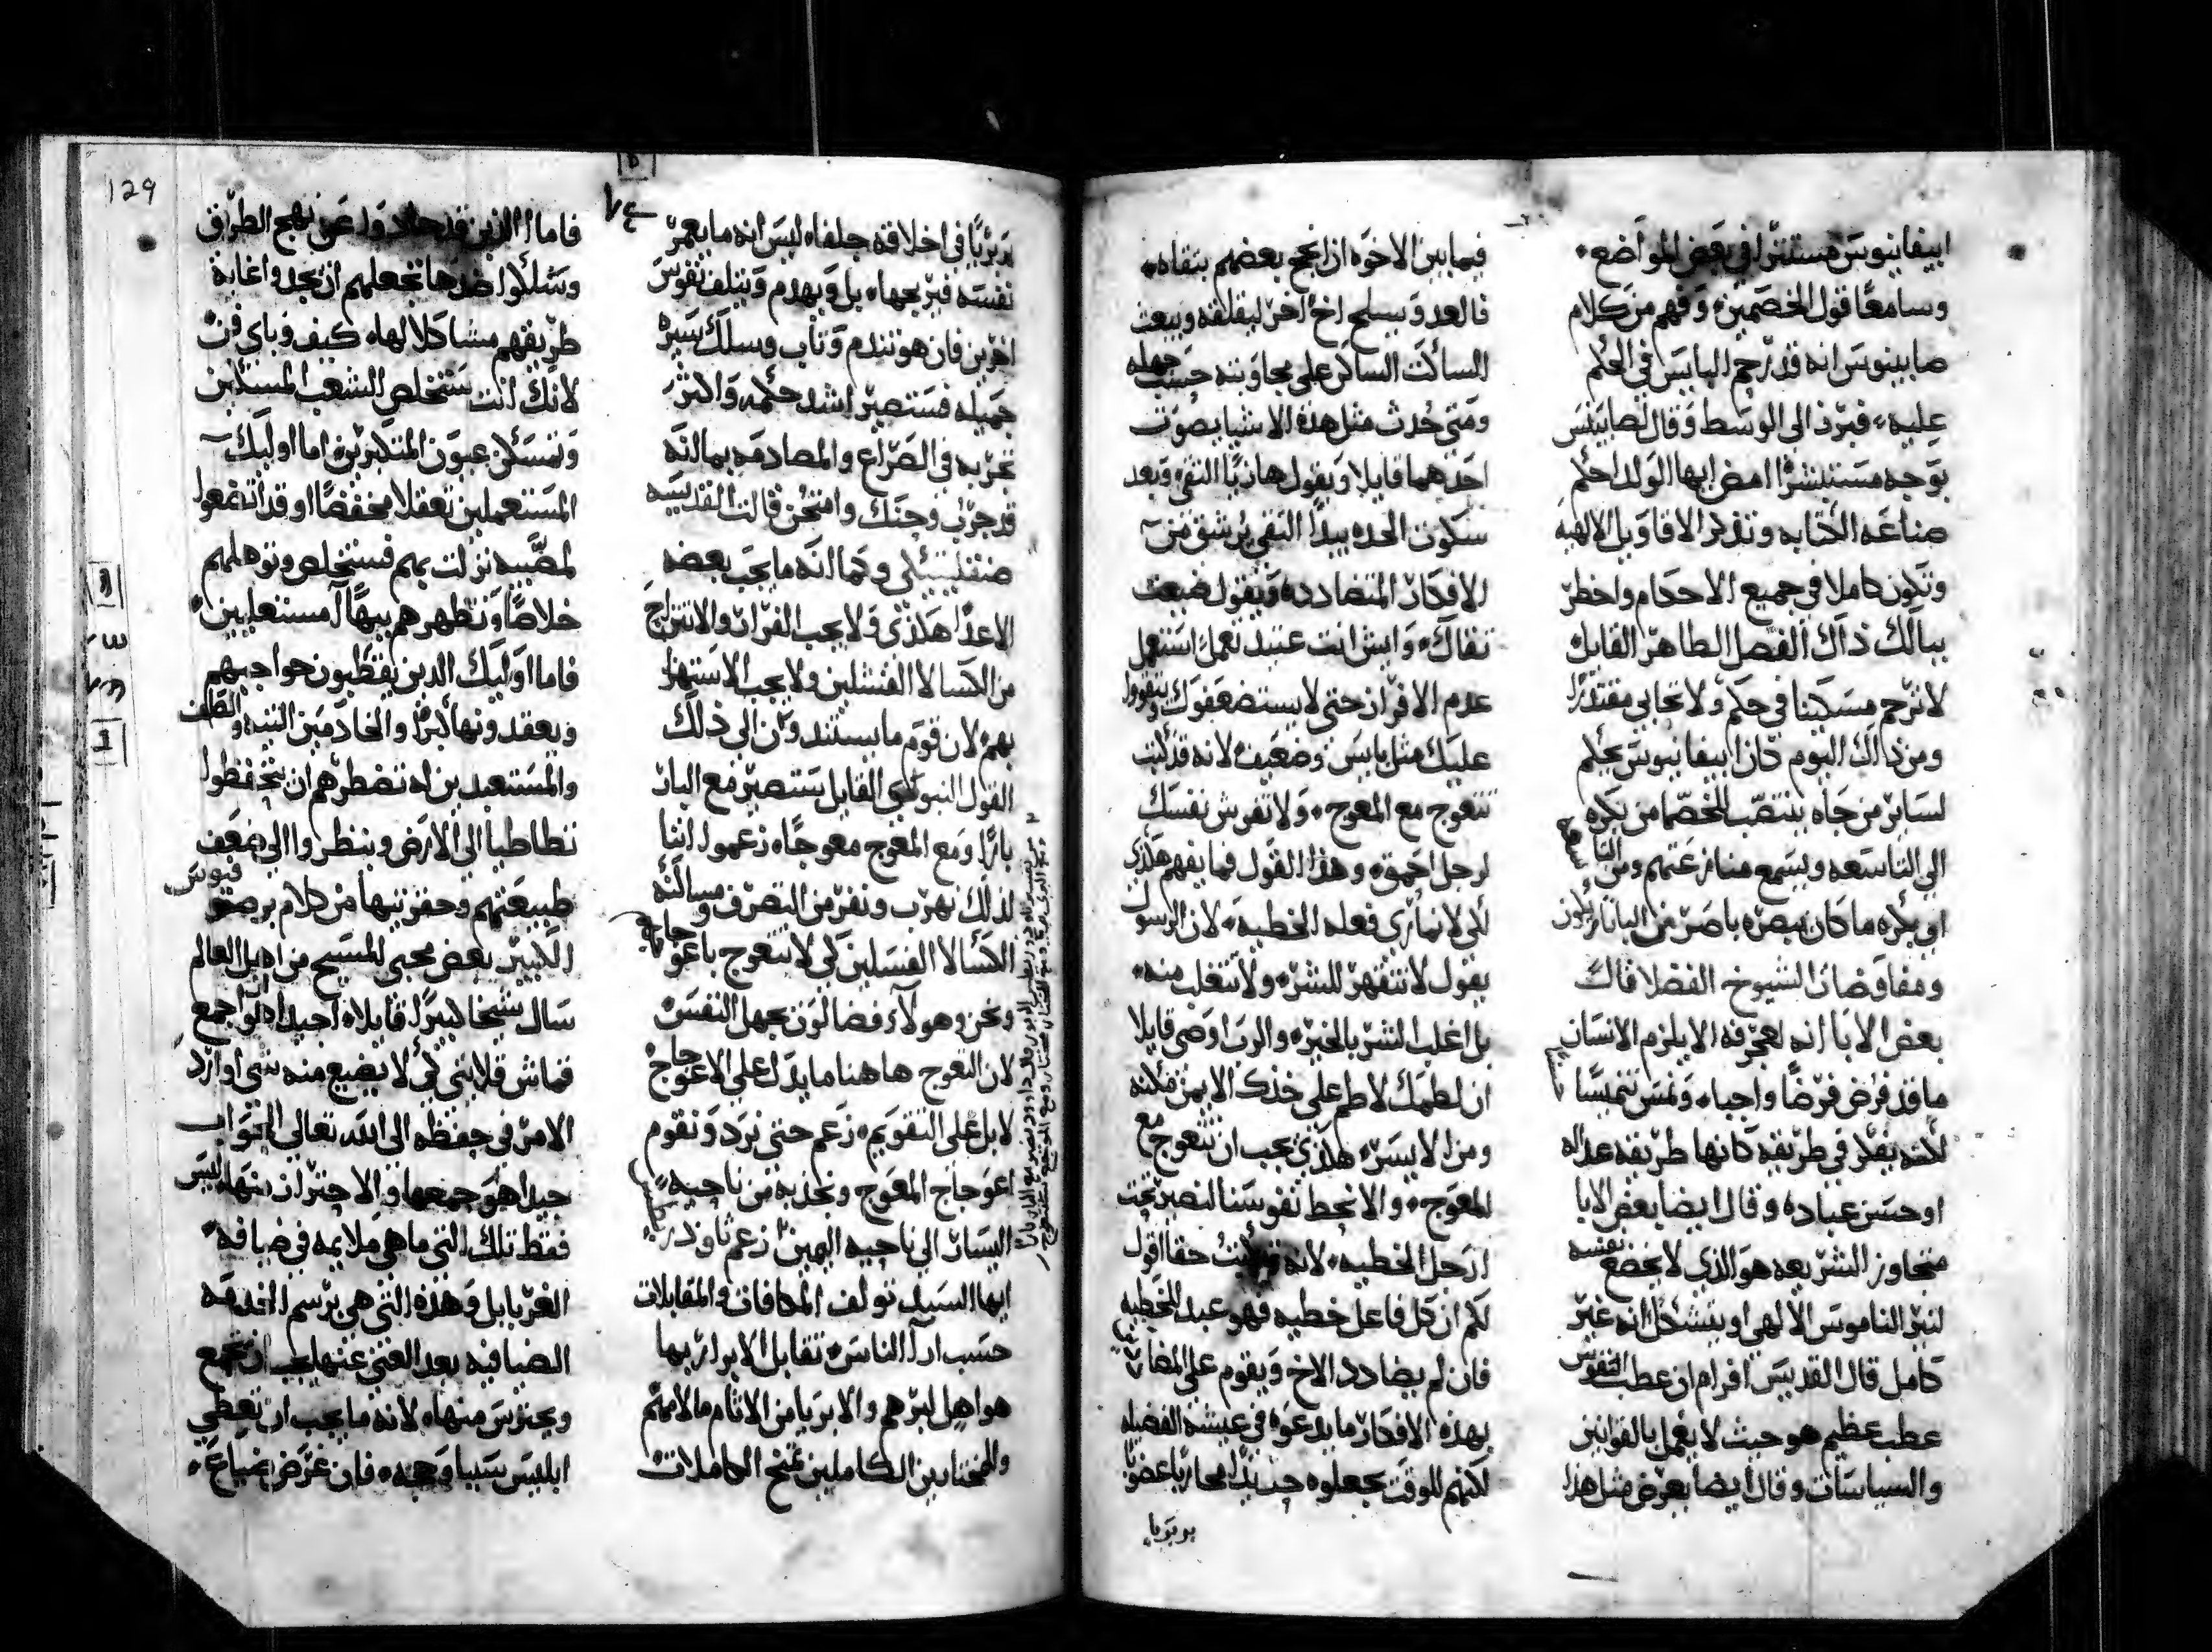 ابيفانيوس مستترًا في بعض المواضع
وسامعًا قول الخصمين وفهم من كلام
صابينوس انه قد رحم البايس في الحكم
عليه فبرز الى الوسط وقال لصابينس
بوجه مستبشرًا امض ايها الولد احكم
صناعه الكتابه وتذكر الاقاويل الالهيه
وتكون كاملا في جميع الاحكام واخطر
ببالك ذاك الفصل الطاهر القايل
لا ترحم مسكينا في حكم ولا تحابي مقتدرًا
ومن ذالك اليوم كان ابيفانيوس يحكم
لساير من جاه ينتصب للخصما من بكره
الى التاسعه ويسمع منازعتهم ومن التاسعه
الي بكره ما كان يبصره باصر
ومفاوضات الشيوخ الفضلا قال
بعض الابا انه لعجرفه الا يلزم الانسان
ما قد فرض فرضًا واجبا
لكنه يفكر في طريقه كانها طريقه عداله
او حسن عباده وقال ايضا بعض الابا
متجاوز الشريعه هو الذي لا يخضع نفسه
لنير الناموس الالهي او يتشكل انه غير
كامل قال القديس افرام ان عطب النفوس
عطب عظيم هو حيث لا يعمل بالقوانين
والسياسات وقال ايضا يعرض مثل هذا
فيما بين الاخوه اذا نجح بعضهم بنقاه
فالعدو يسلح اخ اخر ليقلقه ويبعث
الساكت الساكن على مجاوبته حسب جهله
ومتى حدث مثل هذه الاشيا يصوت
احدهما قايلا ويقول هاذيًا التقي وبعد
سكون الحده يبدا التقي يرشق من
الافكار المتضادده ويقول ضيعت
تقاك وايش انت عتيد تعمل استعمل
عدم الافراز حتى لا يستضعفوك ويتقوون
عليك مثل بايس وضعيف لانه قد كتب
تتعوج مع المعوج ولا تفرش نفسك
لرجل احمق وهذا القول فما يفهم هكذى
لكي لا نماري فعله الخطيه لان الرسول
يقول لا تنقهر للشر ولا تنغلب منه
بل اغلب الشر بالخير والرب اوصى قايلا
ان لطمك لاطم على خدك الايمن مكنه
ومن الايسر هكذى يجب ان تتعوج مع
المعوج والا نحط نفوسنا لنصير تحت
ارجل الخطيه لانه قد كتبت حقا اقول
لكم ان كل فاعل خطيه فهو عبد للخطيه
فان لم يضادد الاخ ويقوم على المضاد
بهذه الافكار ما يدعوه في عيشه الفضيله
لكنهم للوقت يجعلوه حينيذ محاربًا غضوبًا
بربريا
بربريًا في اخلاقه جلفا ليس انه ما يعمر
نفسه فيربحها بل ويهدم ويتلف نفوس
اخرين فان هو تندم وتاب وسلك سيره
جميله فستصير اشد حكمه واكثر
تجربه في الصراع والمصادمه بما انه
قد جرب وحنك وامتحن قالت القديسه
صنقليتيكي وكما انه ما يجب بعضه
الاعدا هكذى ولا يجب الفرار والانتزاح
من الكسالا الفشلين ولا يجب الاستهزا
بهم لان قوم ما يستندون الى ذلك
القول النبوي القايل ستصير مع البار
بارًا ومع المعوج معوجًا زعموا اننا
لذلك نهرب ونفر من التصرف ومسالمة
الكسالا الفسلين لكي لا نتعوج باعوجاجهم
ونحن وهولآء فضالون بجهل النفس
لان التعوج هاهنا ما يدل على الاعوجاج
لا بل على التقويم زعم حتى نرد ونقوم
اعوجاج المعوج ونجذبه من ناحيه
اليسار الى ناحيه اليمين
ايها السيد تولف المكافات والمقابلات
حسب ارآ الناس تقابل الابرار بما
هو اهل لبرهم والابريا من الاثام ما لايمهم
والمختارين الكاملين تمنح الكاملات
129
فاما الذين قد حادوا عن نهج الطريق
وسلكوا ضدها تجعلهم ان يجدوا غاية
طريقهم مشاكلا لها كيف وباي فن
لانك انت ستخلص الشعب المستكين
وتمسكن عيون المتكبرين اما اوليك
المستعملين تعقلا مخفضًا او قد اتضعوا
لمصيبه نزلت بهم فستخلص وتوهلهم
خلاصًا وتظهرهم بيهًا مستعليين
فاما اوليك الذين يقطبون حواجبهم
ويعقدونها كبرًا والخادمين التيه والصلف
والمستعبدين له تضطرهم ان يتحفظوا
تطاطيا الى الارض وينظروا الى ضعف
طبيعتهم وحقرتيها من كلام برصنوفيوس
الكبير بعض محبي المسيح من اهل العالم
سال شيخا كبيرًا قايلا اجيد هو ان اجمع
قماش قلايتي لكي لا يضيع منه شي او ارد
الامر في حفظه الى الله تعالى الجواب
جيدا هو جمعها والاحتراز منها ليس
فقط تلك التي ما هي ملايمه في ضيافه
الغربا بل وهذه التي هي برسم الخدمه
الضيافيه بعد الغنى عنها يجب ان تجمع
ويحترس منها لانه ما يجب ان نعطي
ابليس سببا وحجه فان عرض ضياع